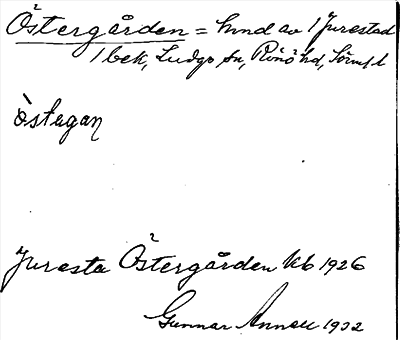 Östergården = hmd av 1 Jurestad
1 bek, Ludgo sn, Rönö hd, Sörml
östagaɳ
Juresta Östergården kb 1926
Gunnar 1932